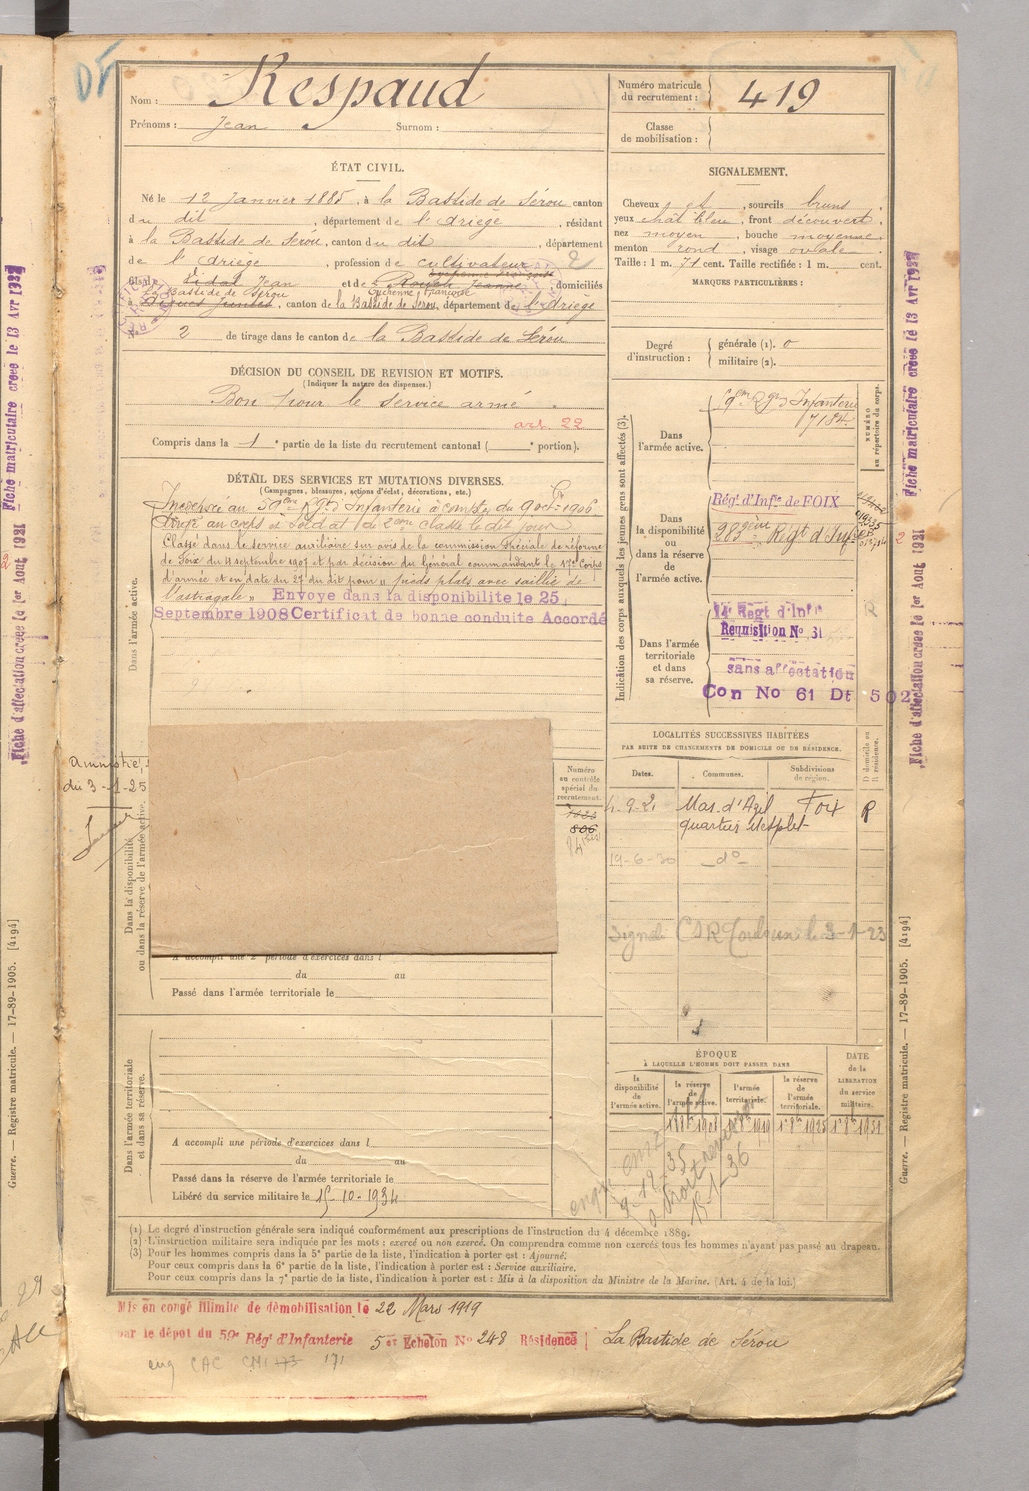 Nom : Respaud
Prénoms : Jean Surnom :
Numéro matricule du recrutement : 419
Classe de mobilisation :
ÉTAT CIVIL.
Né le 12 Janvier 1885, à la Bastide de Sérou canton
du dit, département de l'Ariège, résidant
à la Bastide de Sérou, canton du dit, département
de l'Ariège, profession de cultivateur 2
fils de Vidal Jean et de Rouch Jeanne, domiciliés
La Bastide de Sérou Eychenne Françoise
à, canton de la Bastide de Sérou, département de l'Ariège
N° 2 de tirage dans le canton de la Bastide de Sérou
DÉCISION DU CONSEIL DE REVISION ET MOTIFS.
(Indiquer la nature des dispenses.)
Bon pour le service armé
art. 22
Compris dans la 1e partie de la liste du recrutement cantonal ( e portion).
SIGNALEMENT.
Cheveux, sourcils bruns
yeux chat. bleu, front découvert
nez moyen, bouche moyenne
menton rond, visage ovale
Taille : 1 m. 71 cent. Taille rectifiée : 1 m. cent.
MARQUES PARTICULIÈRES :
Degré d'instruction :
générale (1). 0
militaire (2).
DÉTAIL DES SERVICES ET MUTATIONS DIVERSES.
(Campagnes, blessures, actions d'éclat, décorations, etc.)
Dans l'armée active.
Incorporé au 59ème Rgt Infanterie à compter du 9 octbre 1906
Arrivé au corps et soldat de 2ème classe le dit jour
Classé dans le service auxiliaire sur avis de la commission spéciale de réforme
de Foix du 11 septembre 1907 et par décision du Général commandant le 17e Corps
d'armée et en date du 27 du dit pour „ pieds plats avec saillie de
l'astragale „ Envoye dans la disponibilite le 25
Septembre 1908 Certificat de bonne conduite Accordé
Indication des corps auxquels les jeunes gens sont affectés (3).
NUMÉRO au répertoire du corps.
Dans l'armée active.
59ème Rgt Infanterie
7184
Dans la disponibilité ou dans la réserve de l'armée active.
Régt d'Infie de FOIX
283ème Régt d'Inf
Dans l'armée territoriale et dans sa réserve.
14e Regt d'Infie
Requisition No 31
sans affectation
Con No 61 Dt 502
R
LOCALITÉS SUCCESSIVES HABITÉES
PAR SUITE DE CHANGEMENTS DE DOMICILE OU DE RÉSIDENCE.
Dates. Communes. Subdivisions de région. D domicile ou R résidence.
4-9-21 Mas d'Azil Foix R
quartier
19-6-30 _do_
3-1-23
Amnistie,
du 3-1-25
Dans la disponibilité ou dans la réserve de l'armée active.
Numéro au contrôle spécial du recrutement.
806
A accompli une 2e période d'exercices dans l
du au
Passé dans l'armée territoriale le
Dans l'armée territoriale et dans sa réserve.
A accompli une période d'exercices dans l
du au
Passé dans la réserve de l'armée territoriale le
Libéré du service militaire le 15-10-1934
ÉPOQUE
À LAQUELLE L'HOMME DOIT PASSER DANS
la disponibilité de l'armée active. la réserve de l'armée active. l'armée territoriale. la réserve de l'armée territoriale.
DATE de la LIBÉRATION du service militaire.
9-12-35
15-1-36
(1) Le degré d'instruction générale sera indiqué conformément aux prescriptions de l'instruction du 4 décembre 1889.
(2) L'instruction militaire sera indiquée par les mots : exercé ou non exercé. On comprendra comme non exercés tous les hommes n'ayant pas passé au drapeau.
(3) Pour les hommes compris dans la 5e partie de la liste, l'indication à porter est : Ajourné.
Pour ceux compris dans la 6e partie de la liste, l'indication à porter est : Service auxiliaire.
Pour ceux compris dans la 7e partie de la liste, l'indication à porter est : Mis à la disposition du Ministre de la Marine. (Art. 4 de la loi.)
Mis en congé illimité de démobilisation le 22 Mars 1919
par le dépot du 59e Rég' d'Infanterie 5 er Echelon No 248 Résidence La Bastide de Sérou
eng CAC CM1 73 171
Fiche matriculaire creee le 13 Avr 1937
Fiche d'affectation creee le 1er Aout 1931
Guerre. — Registre matricule. — 17-89-1905. [4194]
Fiche matriculaire creee le 13 Avr 1937
Fiche d'affectation creee le 1er Aout 1931
Guerre. — Registre matricule. — 17-89-1905. [4194]